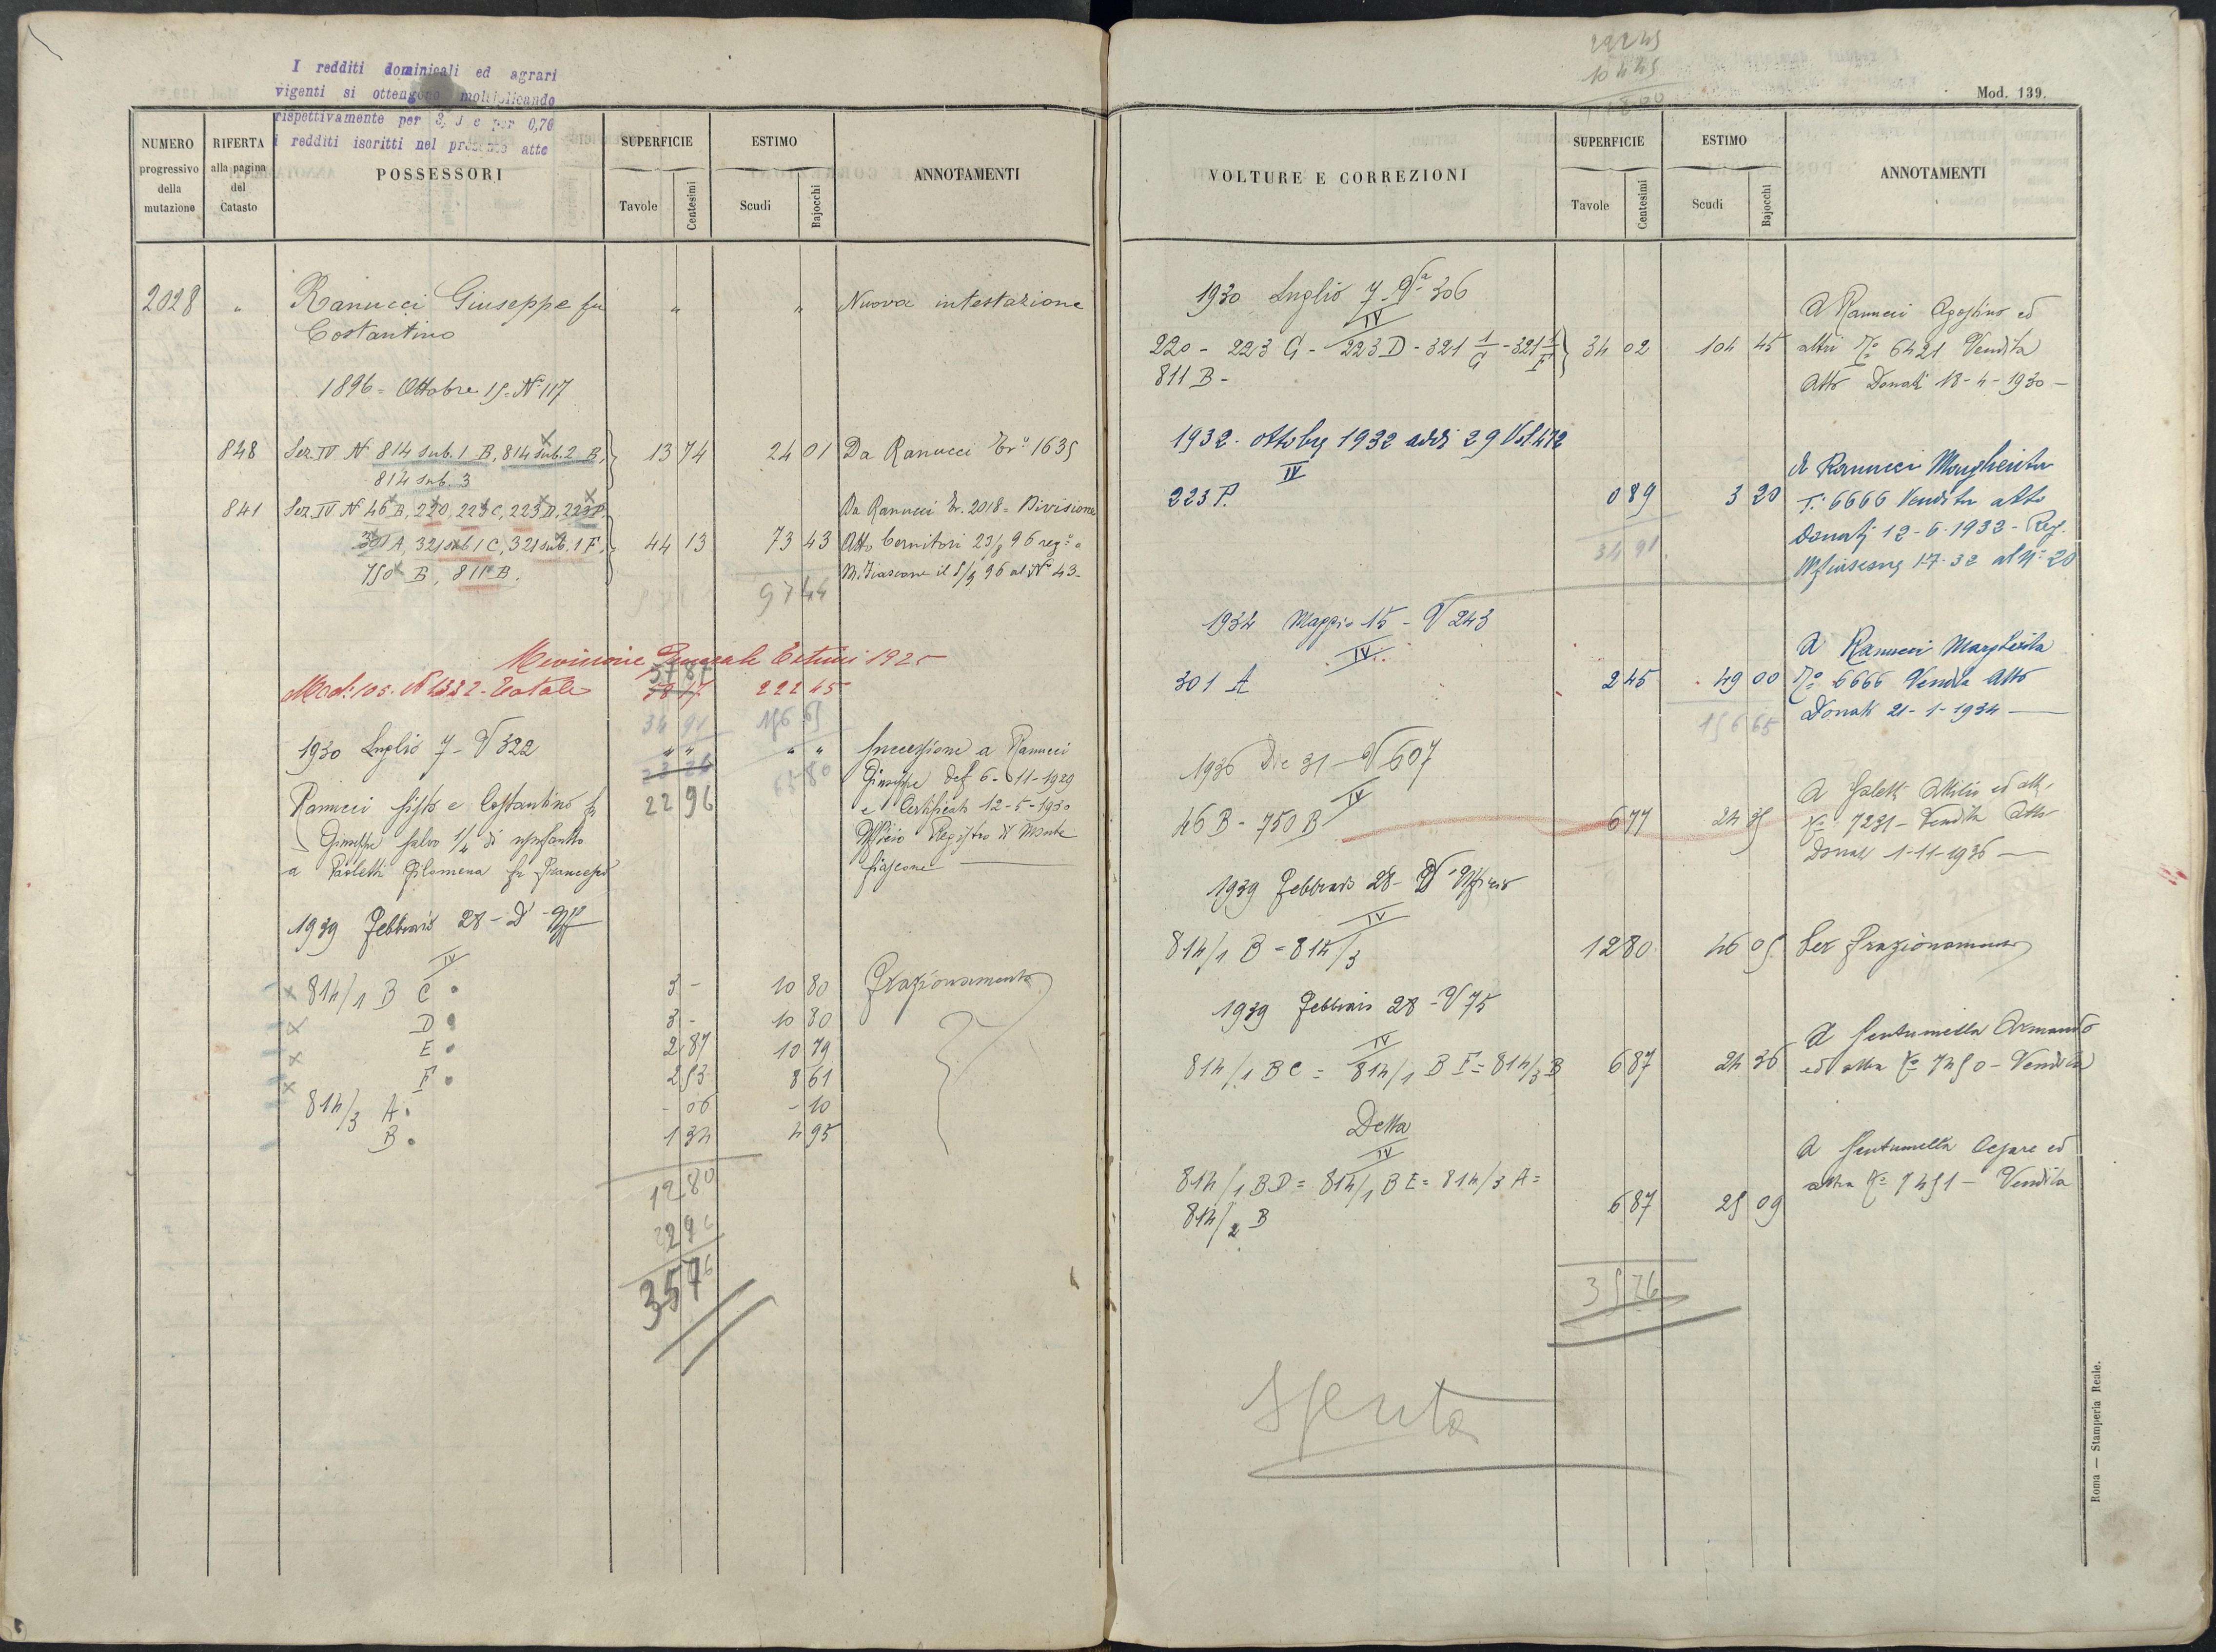 I redditi dominicali ed agrari
vigenti si ottengono moltiplicando
rispettivamente per 3, e per 0,70
i redditi iscritti nel presente atto
NUMERO progressivo della mutazione
RIFERTA alla pagina del Catasto
POSSESSORI
SUPERFICIE
Tavole
Centesimi
ESTIMO
Scudi
Bajocchi
ANNOTAMENTI
2028 " Ranucci Giuseppe fu " " Nuova intestazione
Costantino
1896 = Ottobre 15 = N° 117
848 Sez. IV N. 814 sub. 1 B, 814 sub. 2 B, 13 74 24 01 Da Ranucci Tr: 1635
814 sub. 3
841 Sez. IV N 46 B, 220, 223 C, 223 D, 223 P. Da Ranucci Tr. 2018 = Divisione
301 A, 321 sub 1 C, 321 sub. 1 F, 44 13 73 43 Atto Cernitori 23/8 96 reg:°
750 B, 811 B. M. Fiascone il 5/9 96 al N° 43-
97 44
Revisione Generale Estimi 1925
57 87
Mod: 105. N 1332 - Totale 58 17 222 45
34 91 156 65
1930 Luglio 7 - V 322 " " " " Successione a Ranucci
23 26 65 80 Giuseppe def 6-11-1929
Ranucci Sisto e Costantino fu 22 96 e Certificato 12-5-1930
Giuseppe salvo 1/4 di usufrutto Ufficio Registro di Monte
a Paoletti Filomena fu Francesco fiascone
1939 Febbraio 28 - D - Uff
IV
814/1 B C 3 - 10 80 Frazionamento
D 3 - 10 80
E 2 87 10 79
F 2 53 8 61
814/3 A - 06 - 10
B 1 34 4 95
12 80
22 96
35 76
222 45
104 45
Mod. 139.
VOLTURE E CORREZIONI
SUPERFICIE
Tavole
Centesimi
ESTIMO
Scudi
Bajocchi
ANNOTAMENTI
1930 Luglio 7 - Va 306
IV A Ranucci Agostino ed
220 - 223 G - 223 D - 321 1/G - 321 1/F 34 02 104 45 altri No 6421 Vendita
811 B - Atto Donati 18-4-1930 -
1932. ottobre 1932 addi 29 Vol 472
IV A Ranucci Margherita
223 P. 0 89 3 20 T: 6666 Vendita atto
34 91 Donati 12-6-1932 - Reg.
Mfiascone 1-7-32 al N: 20
1934 Maggio 15 - V 243
IV A Ranucci Margherita
301 A 2 45 49 00 No 6666 Vendita Atto
156 65 Donati 21-1-1934
1936 Dic 31 - V 607
IV A Saletti Attilio ed altri
46 B - 750 B 6 77 24 35 No 7231 - Vendita Atto
Donati 1-11-1936
1939 Febbraio 28 - D Ufficio
IV
814/1 B = 814/3 12 80 46 05 Per frazionamento
1939 Febbraio 28 - V 75
IV A Sentumella Armando
814/1 B C = 814/1 B F = 814/3 B 6 87 24 36 ed altra No 7450 - Vendita
Detta
IV A Sentumella Cesare ed
814/1 B D = 814/1 B E = 814/3 A = altra No 7451 - Vendita
814/2 B 6 87 25 09
35 76
Spenta
Roma — Stamperia Reale.